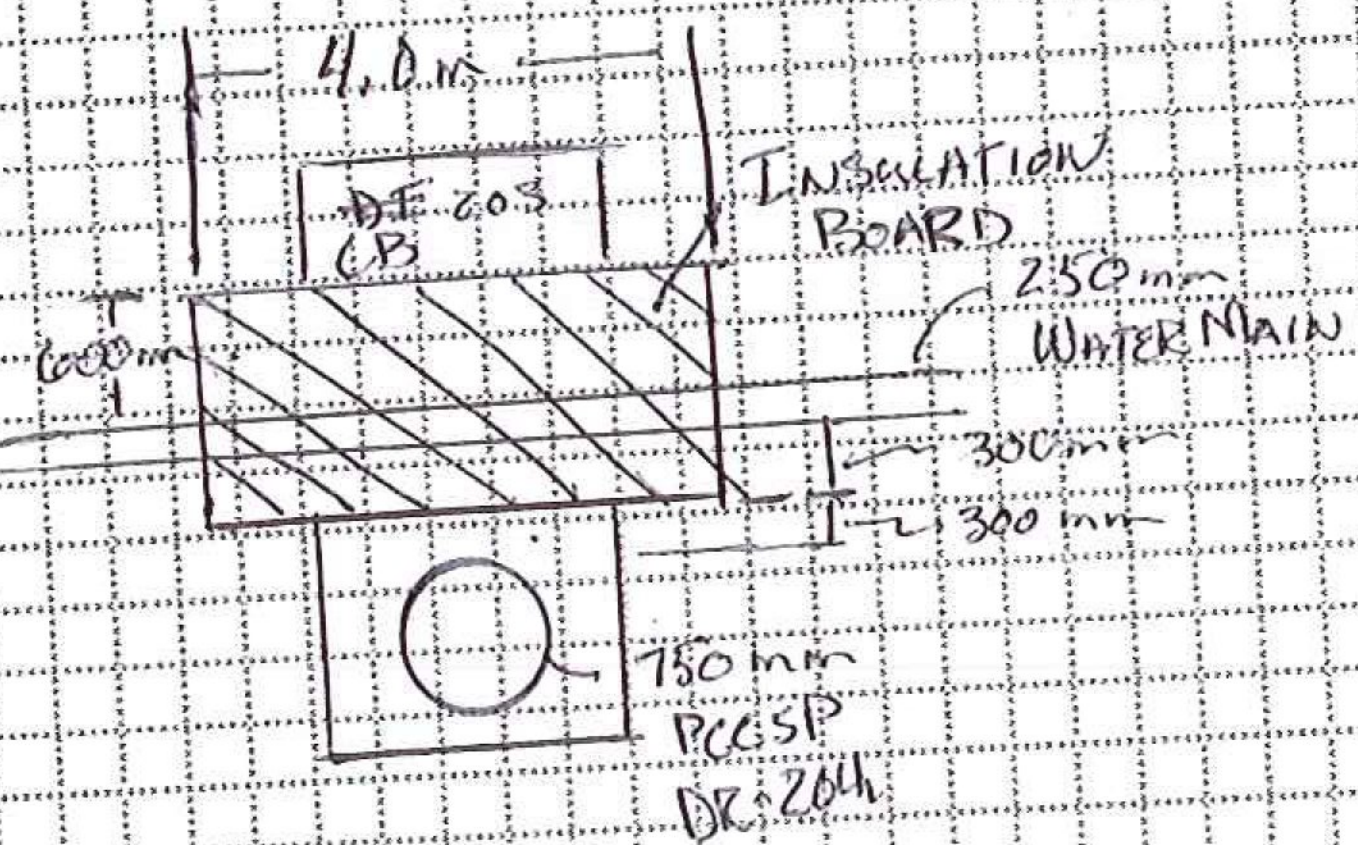 4.0 m
DI 203
CB
INSULATION
BOARD
250 mm
WATER MAIN
600 mm
300 mm
300 mm
750 mm
PCCSP
DR 204